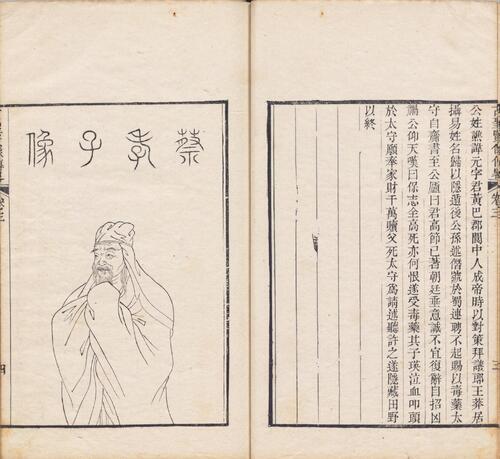 卷三
三
公姓譙諱元字君黃巴郡閬中人成帝時以對策拜議郎王莽居
攝易姓名歸以隱遁後公孫述僭號於蜀連聘不起賜以毒藥太
守自齎書至公廬曰君高節已著朝廷垂意誠不宜復辭自招凶
禍公仰天嘆曰保志全高死亦何恨遂受毒藥其子瑛泣血叩頭
於太守願奉家財千萬贖父死太守爲請述聽許之遂隱藏田野
以終
蔡孝子像
四